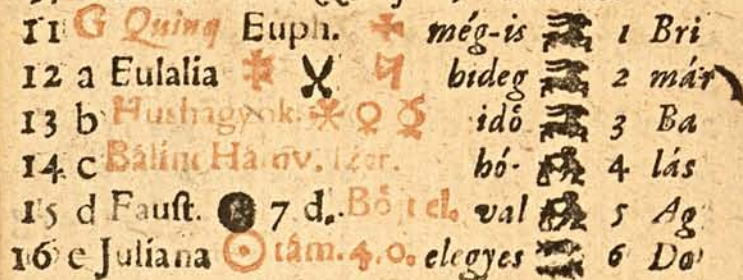 11 G Quinq Euph. még-is 1 Bri
12 a Eulalia bideg 2 már
13 b Hushagyok. idő 3 Ba
14 c Bálint Ham v. szer. hó- 4 lás
15 d Fauſt. 7 d. Bőjt el. val 5 Ag
16 e Juliana tám. 4. o. elegyes 6 Do